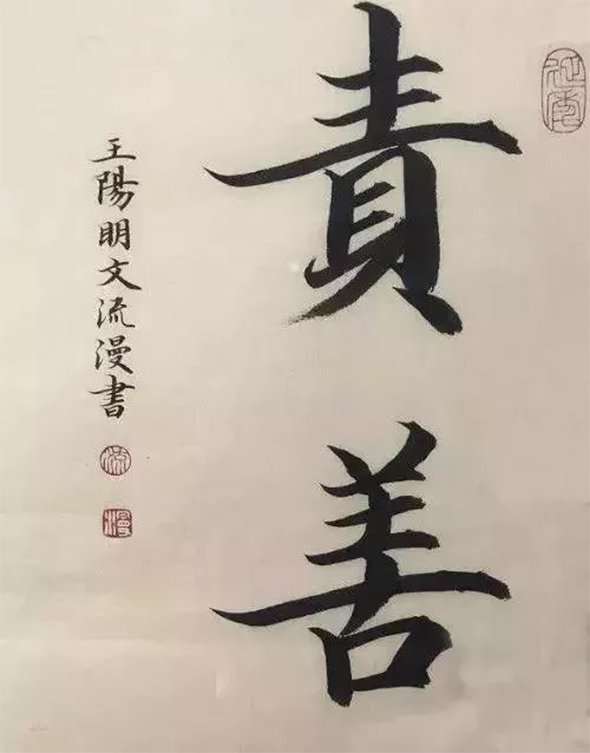 責
善
王陽明文流漫書